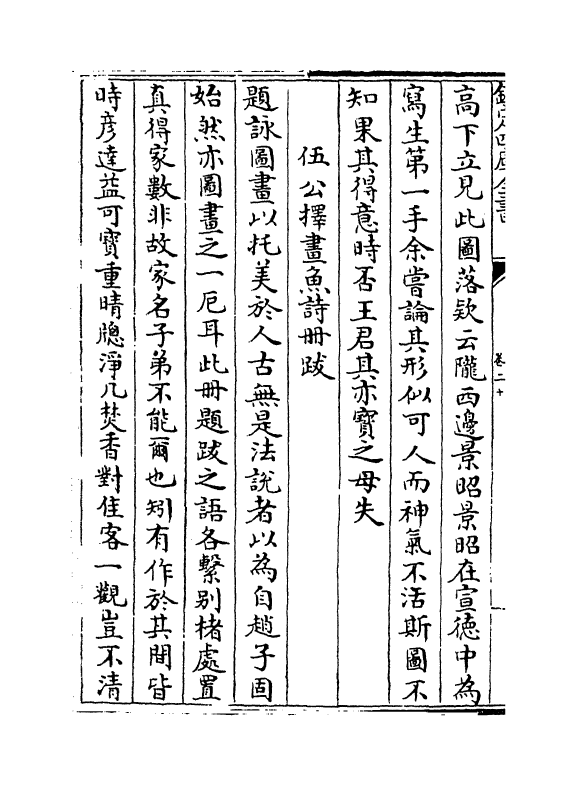 欽定四庫全書
卷二十
高下立見此圖落欵云隴西邊景昭景昭在宣德中為
寫生第一手余嘗論其形似可人而神氣不活斯圖不
知果其得意時否王君其亦寶之毋失
伍公擇畫魚詩冊跋
題詠圖畫以托美於人古無是法說者以為自趙子固
始然亦圖畫之一厄耳此冊題跋之語各繫别楮處置
真得家數非故家名子弟不能爾也矧有作於其間皆
時彦達益可寶重晴牎淨几焚香對佳客一觀豈不清